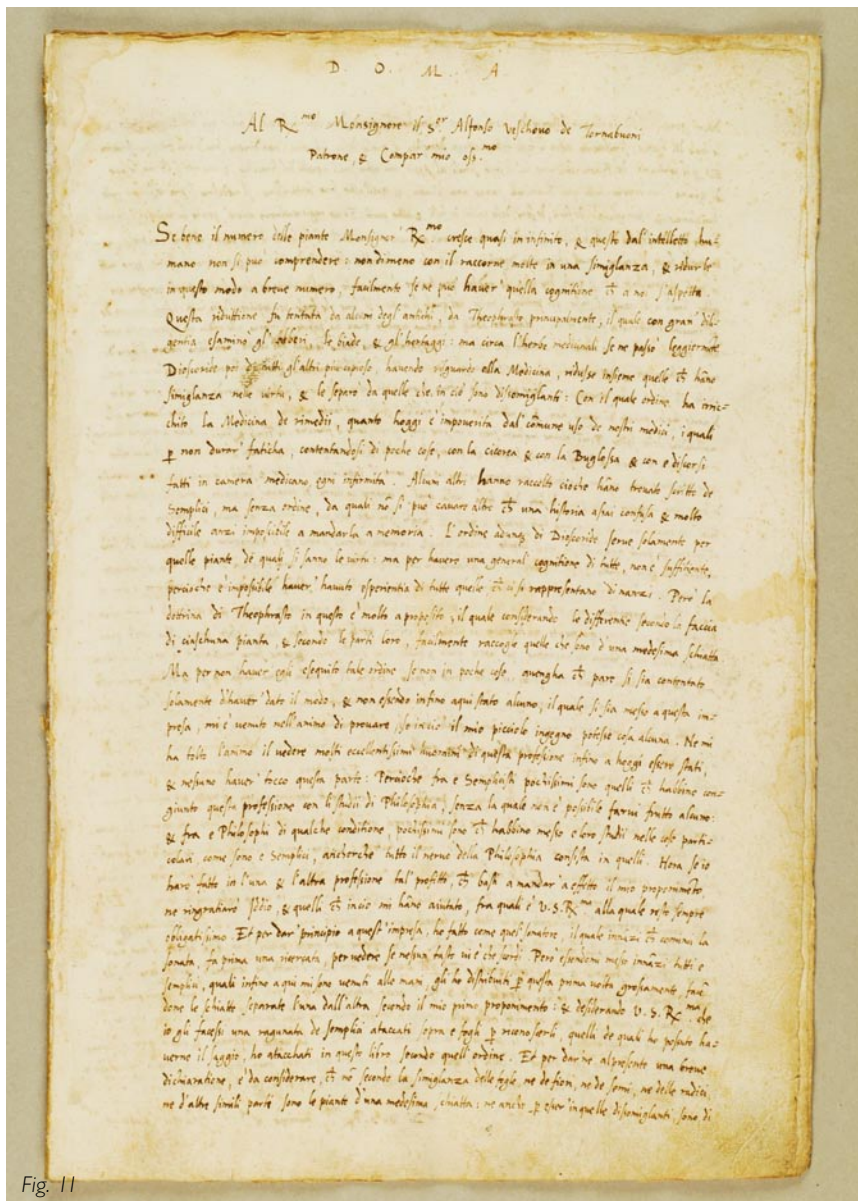 D. O. M. A
Al R.mo Monsignore il S.or Alfonso Veschovo de Tornabuoni
Patrone, & Compar' mio oss.mo
Se bene il numero delle piante Monsignor R.mo cresce quasi in infinito, & questo dal'intelletto hu-
mano non si puo comprendere: nondimeno con il raccorne molte in una simiglanza, & ridurle
in questo modo a breve numero, facilmente se ne può haver' quella cognitione ch̃ a noi s'aspetta.
Questa riduttione fu tentata da alcuni degl'antichi, da Theophrasto principalmente, il quale con gran' dili-
gentia esaminò gl'alberi, le biade, & gl'hortaggi: ma circa l'herbe medicinali se ne passò leggiermẽte
Dioscoride poi di tutti gl'altri piu copioso, havendo riguardo alla Medicina, ridusse insieme quelle ch̃ hãno
simiglanza nelle virtù, & le separò da quelle che in ciò sono dissomiglanti: Con il quale ordine ha irric-
chito la Medicina de rimedii, quanto hoggi è impoverita dal'cõmune uso de nostri medici, i quali
p̱ non durar' faticha, contentandosi di poche cose, con la cicorea & con la Buglossa & con e discorsi
fatti in camera medicano egni infirmità. Alcuni altri hanno raccolto cioche hãno trovato scritto de
Semplici, ma senza ordine, da quali nõ si può cavare altro ch̃ una historia assai confusa & molto
difficile anzi impossibile a mandarla a memoria. L'ordine adunq; di Dioscoride serve solamente per
quelle piante, de quali si sanno le virtu: ma per havere una general' cognitione di tutte, non è suffitiente,
percioche è impossibile haver' havuto esperientia di tutte quelle ch̃ ci si rappresentano dinanzi. Però la
dottrina di Theophrasto in questo è molto a proposito, il quale considerando le differenze secondo la faccia
di ciaschuna pianta, & secondo le parti loro, facilmente raccoglie quelle che sono d'una medesima schiatta
Ma per non haver egli eseguito tale ordine se non in poche cose, quengha ch̃ pare si sia contentato
solamente d'haver' dato il modo, & non essendo infino aqui stato alcuno, il quale si sia messo a questa im-
presa, mi è venuto nell'animo di provare, se inciò il mio picciolo ingegno potesse cosa alcuna. Ne mi
ha tolto l'animo il vedere molti eccellentissimi huomini di questa professione infino a hoggi essere stati,
& nessuno haver' tocco questa parte: Percioche fra e Semplicisti pochissimi sono quelli ch̃ habbino con-
giunto questa professione con li studii di Philosophia, senza la quale non è possibile farvi frutto alcuno:
& fra e Philosophi di qualche conditione, pochissimi sono ch̃ habbino messo e loro studii nelle cose parti-
colari come sono e Semplici, anchorche tutto il nervo della Philosophia consista in quelli. Hora se io
harò fatto in l'una & l'altra professione tal' profitto, ch̃ basti a mandar' a effetto il mio proponimẽto
ne ringratiarò Iddio, & quelli ch̃ inciò mi hãno aiutato, fra quali è V.S.R.ma alla quale resto sempre
obligatissimo. Et per dar' principio a quest'impresa, ho fatto come quel sonatore, il quale innãzi ch̃ cominci la
sonata, fa prima una ricercata, per vedere se nessun tasto vi è che scordi Però essendomi messo innãzi tutti e
semplici, quali infino a qui mi sono venuti alle mani, gli ho distribuiti p̱ questa prima volta grossamente, facẽ
done le schiatte separate l'una dall'altra secondo il mio primo proponimento: & desiderando V.S.R.ma che
io gli facessi una ragunata de semplici ataccati sopra e fogli p̱ riconoscerli, quelli de quali ho possuto ha-
verne il saggio, ho atacchati in questo libro secondo quell'ordine. Et per darne al presente una breve
dichiaratione, è da considerare, ch̃ nõ secondo la simiglanza delle fogle, ne de fiori, ne de semi, ne delle radici,
ne d'altre simili parti sono le piante d'una medesima schiatta: ne anche p̱ esser' in quelle dissomiglanti, sono di
Fig. 11